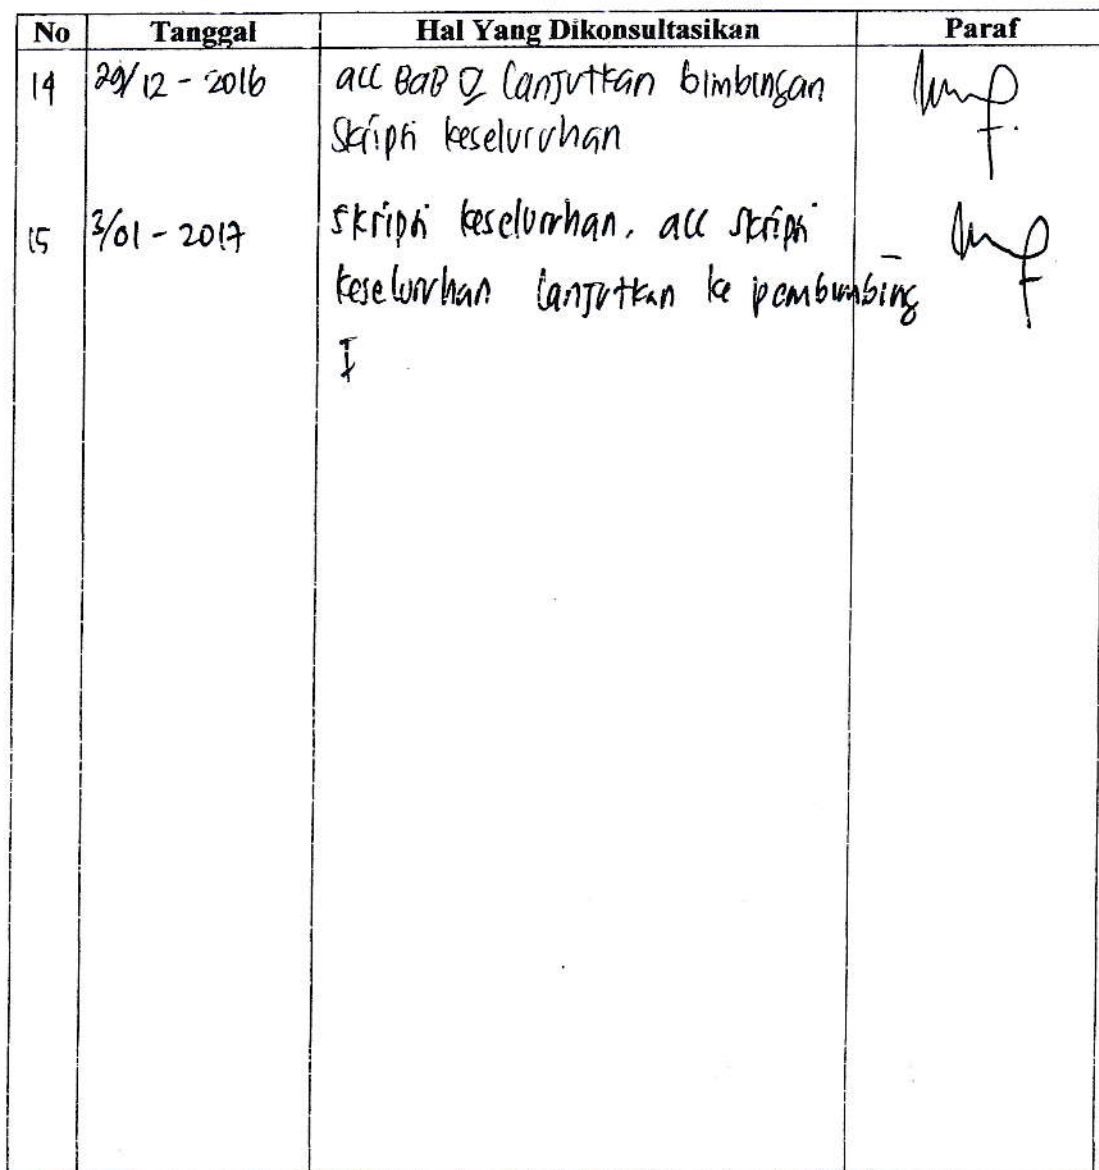 No Tanggal Hal Yang Dikonsultasikan Paraf
14 29/12 - 2016 acc BaB V lanjutkan bimbingan
Skripsi keseluruhan
15 3/01 - 2017 skripsi keseluruhan. acc skripsi
keseluruhan lanjutkan ke pembimbing
I